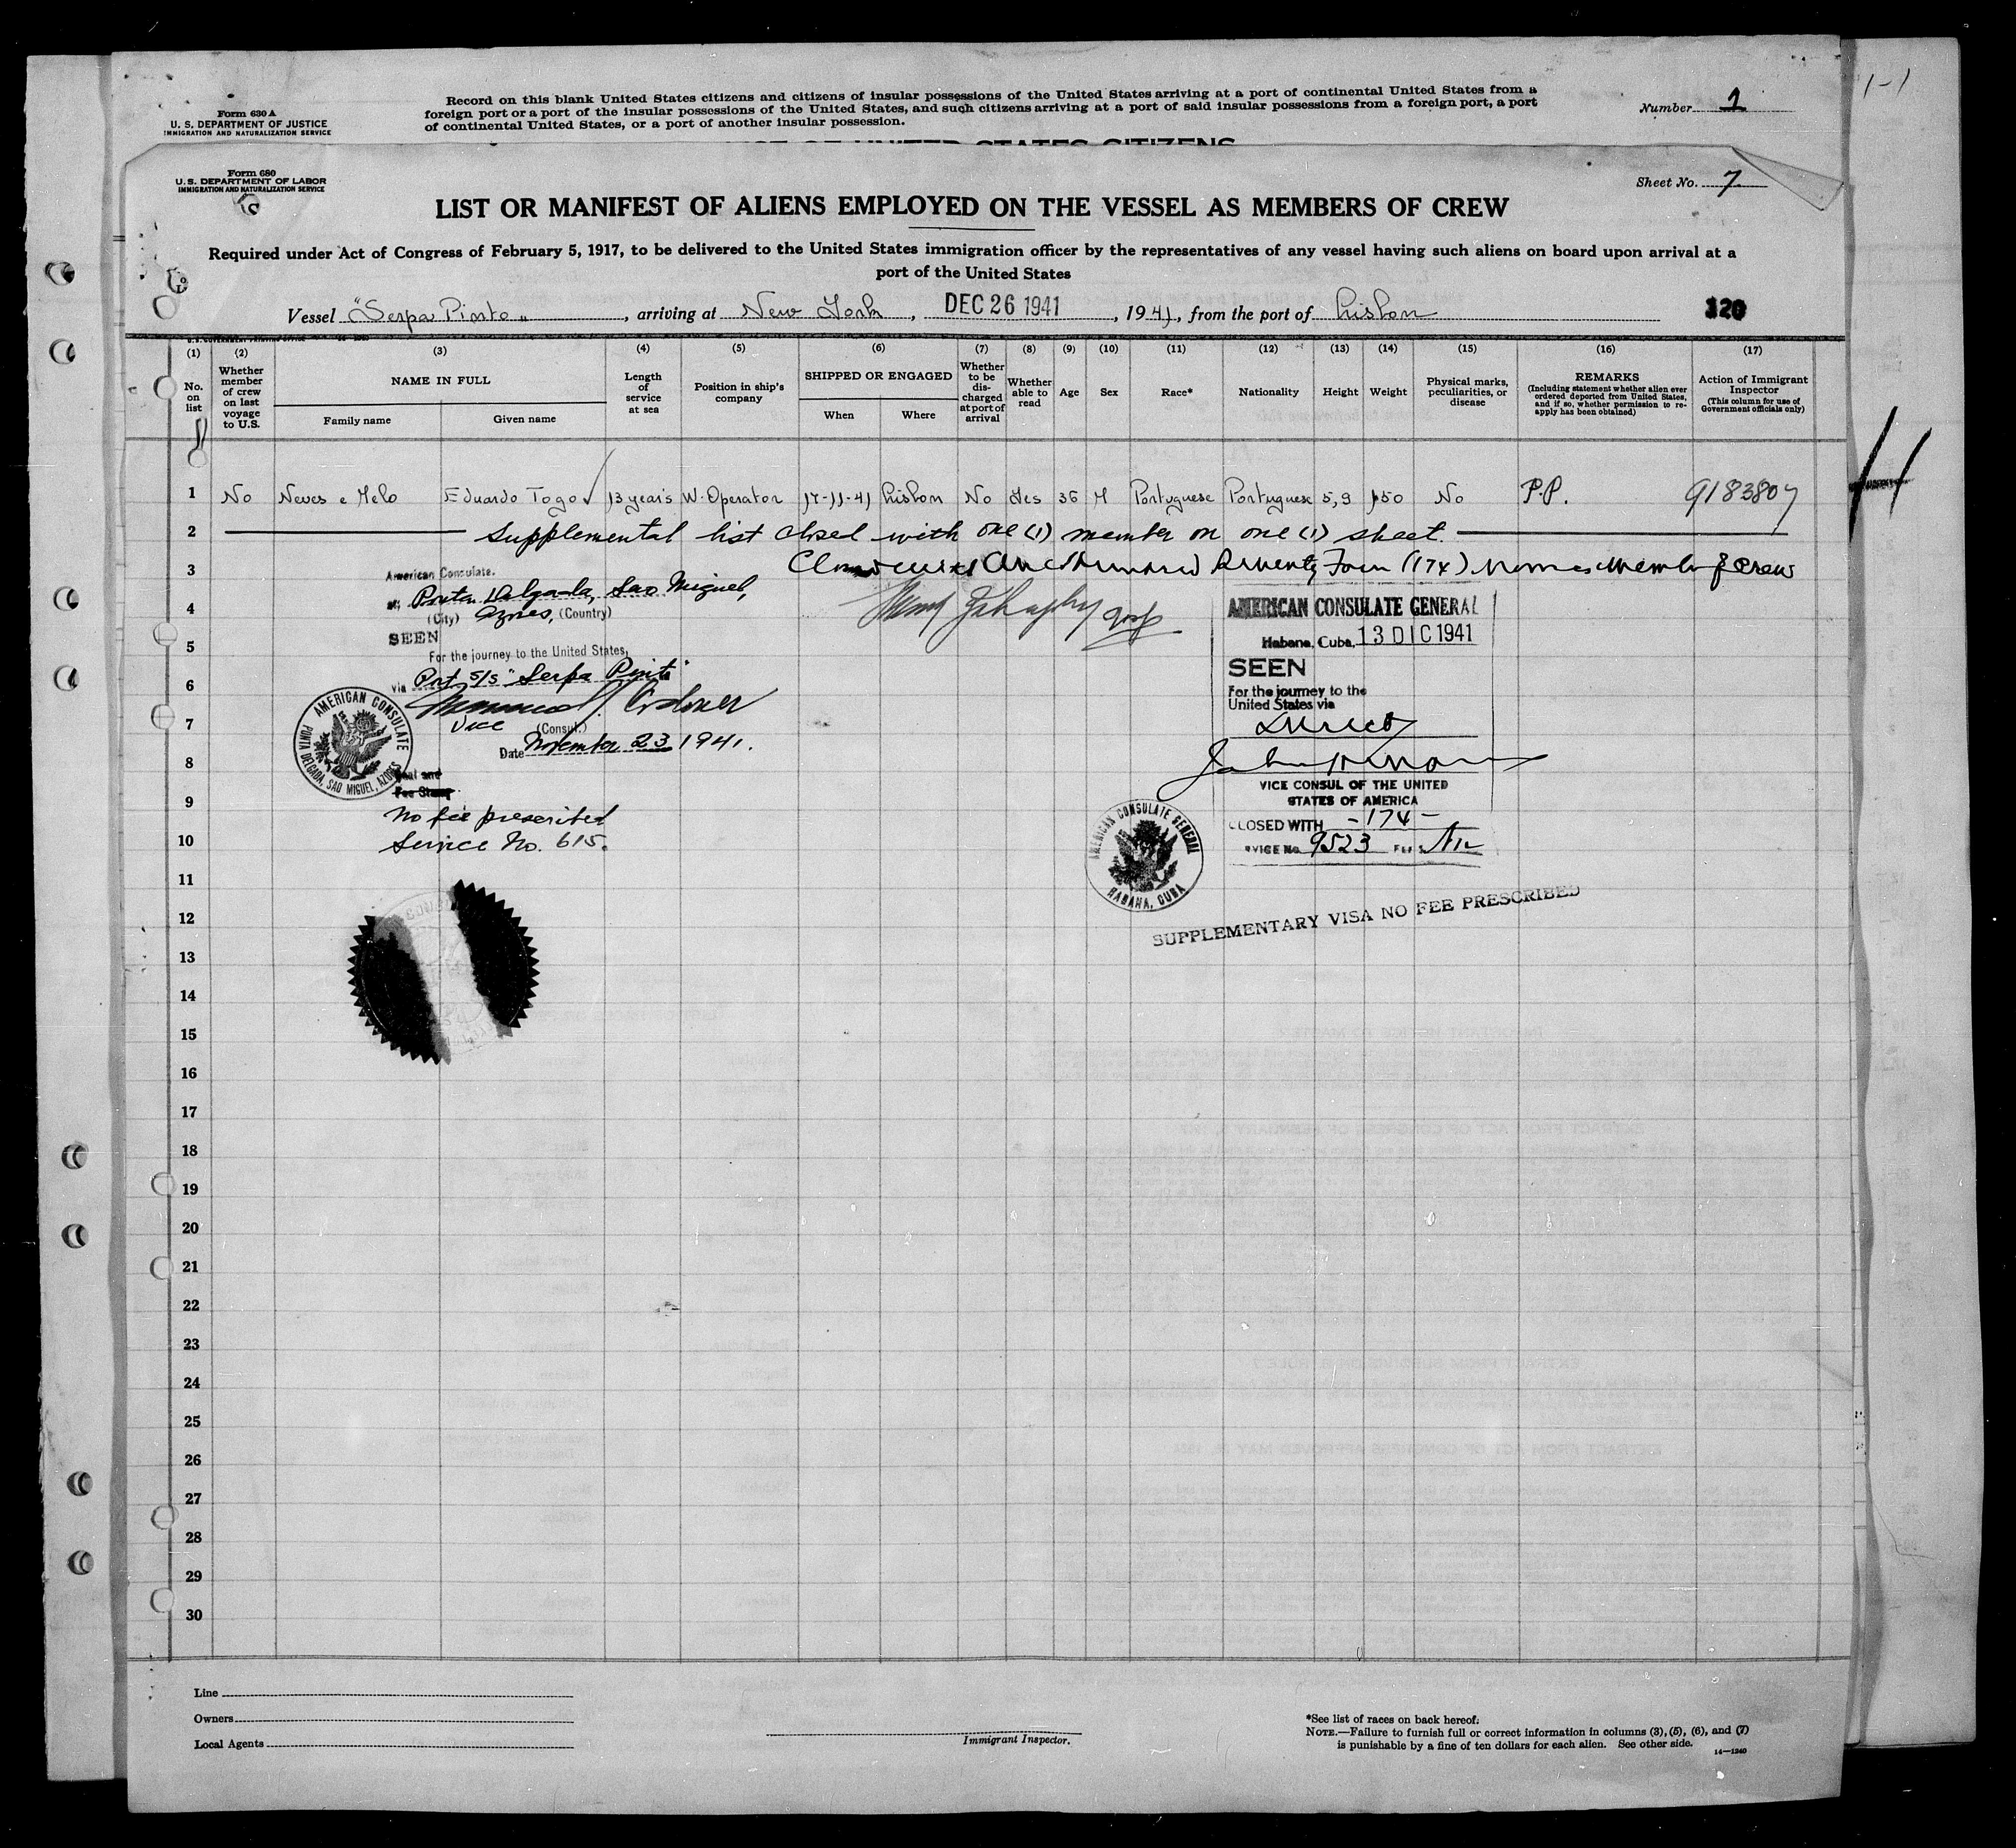 1-1
Form 630 A
U. S. DEPARTMENT OF JUSTICE
IMMIGRATION AND NATURALIZATION SERVICE
Record on this blank United States citizens and citizens of insular possessions of the United States arriving at a port of continental United States from a
foreign port or a port of the insular possessions of the United States, and such citizens arriving at a port of said insular possessions from a foreign port, a port
of continental United States, or a port of another insular possession.
Number 1
LIST OF UNITED STATES CITIZENS
Form 680
U. S. DEPARTMENT OF LABOR
IMMIGRATION AND NATURALIZATION SERVICE
Sheet No. 7
LIST OR MANIFEST OF ALIENS EMPLOYED ON THE VESSEL AS MEMBERS OF CREW
Required under Act of Congress of February 5, 1917, to be delivered to the United States immigration officer by the representatives of any vessel having such aliens on board upon arrival at a
port of the United States
Vessel "Serpa Pinto", arriving at New York, DEC 26 1941, 1941, from the port of Lisbon 120
(1) (2) (3) (4) (5) (6) (7) (8) (9) (10) (11) (12) (13) (14) (15) (16) (17)
No. on list
Whether member of crew on last voyage to U.S.
NAME IN FULL
Family name Given name
Length of service at sea
Position in ship's company
SHIPPED OR ENGAGED
When Where
Whether to be discharged at port of arrival
Whether able to read
Age
Sex
Race*
Nationality
Height
Weight
Physical marks, peculiarities, or disease
REMARKS
(Including statement whether alien ever ordered deported from United States, and if so, whether permission to reapply has been obtained)
Action of Immigrant Inspector
(This column for use of Government officials only)
1 No Neves e Melo Eduardo Togo 13 years W. Operator 17-11-41 Lisbon No Yes 36 M Portuguese Portuguese 5,9 150 No P.P. 9183807
2 Supplemental list closed with one (1) member on one (1) sheet.
3 One Hundred Seventy Four (174) Names Member of Crew
4
5
6
7
8
9
10
11
12
13
14
15
16
17
18
19
20
21
22
23
24
25
26
27
28
29
30
American Consulate.
at Ponta Delgada, Sao Miguel,
(City) Azores, (Country)
SEEN
For the journey to the United States,
via Port S/S "Serpa Pinto"
Vice (Consul.)
Date November 23 1941.
AMERICAN CONSULATE
PONTA DELGADA, SAO MIGUEL, AZORES
Seal and
Fee Stamp
No fee prescribed
Service No. 615.
AMERICAN CONSULATE GENERAL
Habana, Cuba, 13 DIC 1941
SEEN
For the journey to the
United States via
Direct
VICE CONSUL OF THE UNITED
STATES OF AMERICA
CLOSED WITH -174-
SERVICE No. 9523 FEE Nil
AMERICAN CONSULATE GENERAL
HABANA, CUBA
SUPPLEMENTARY VISA NO FEE PRESCRIBED
Line
Owners
Local Agents
Immigrant Inspector.
*See list of races on back hereof.
NOTE.—Failure to furnish full or correct information in columns (3), (5), (6), and (7)
is punishable by a fine of ten dollars for each alien. See other side.
14—1240